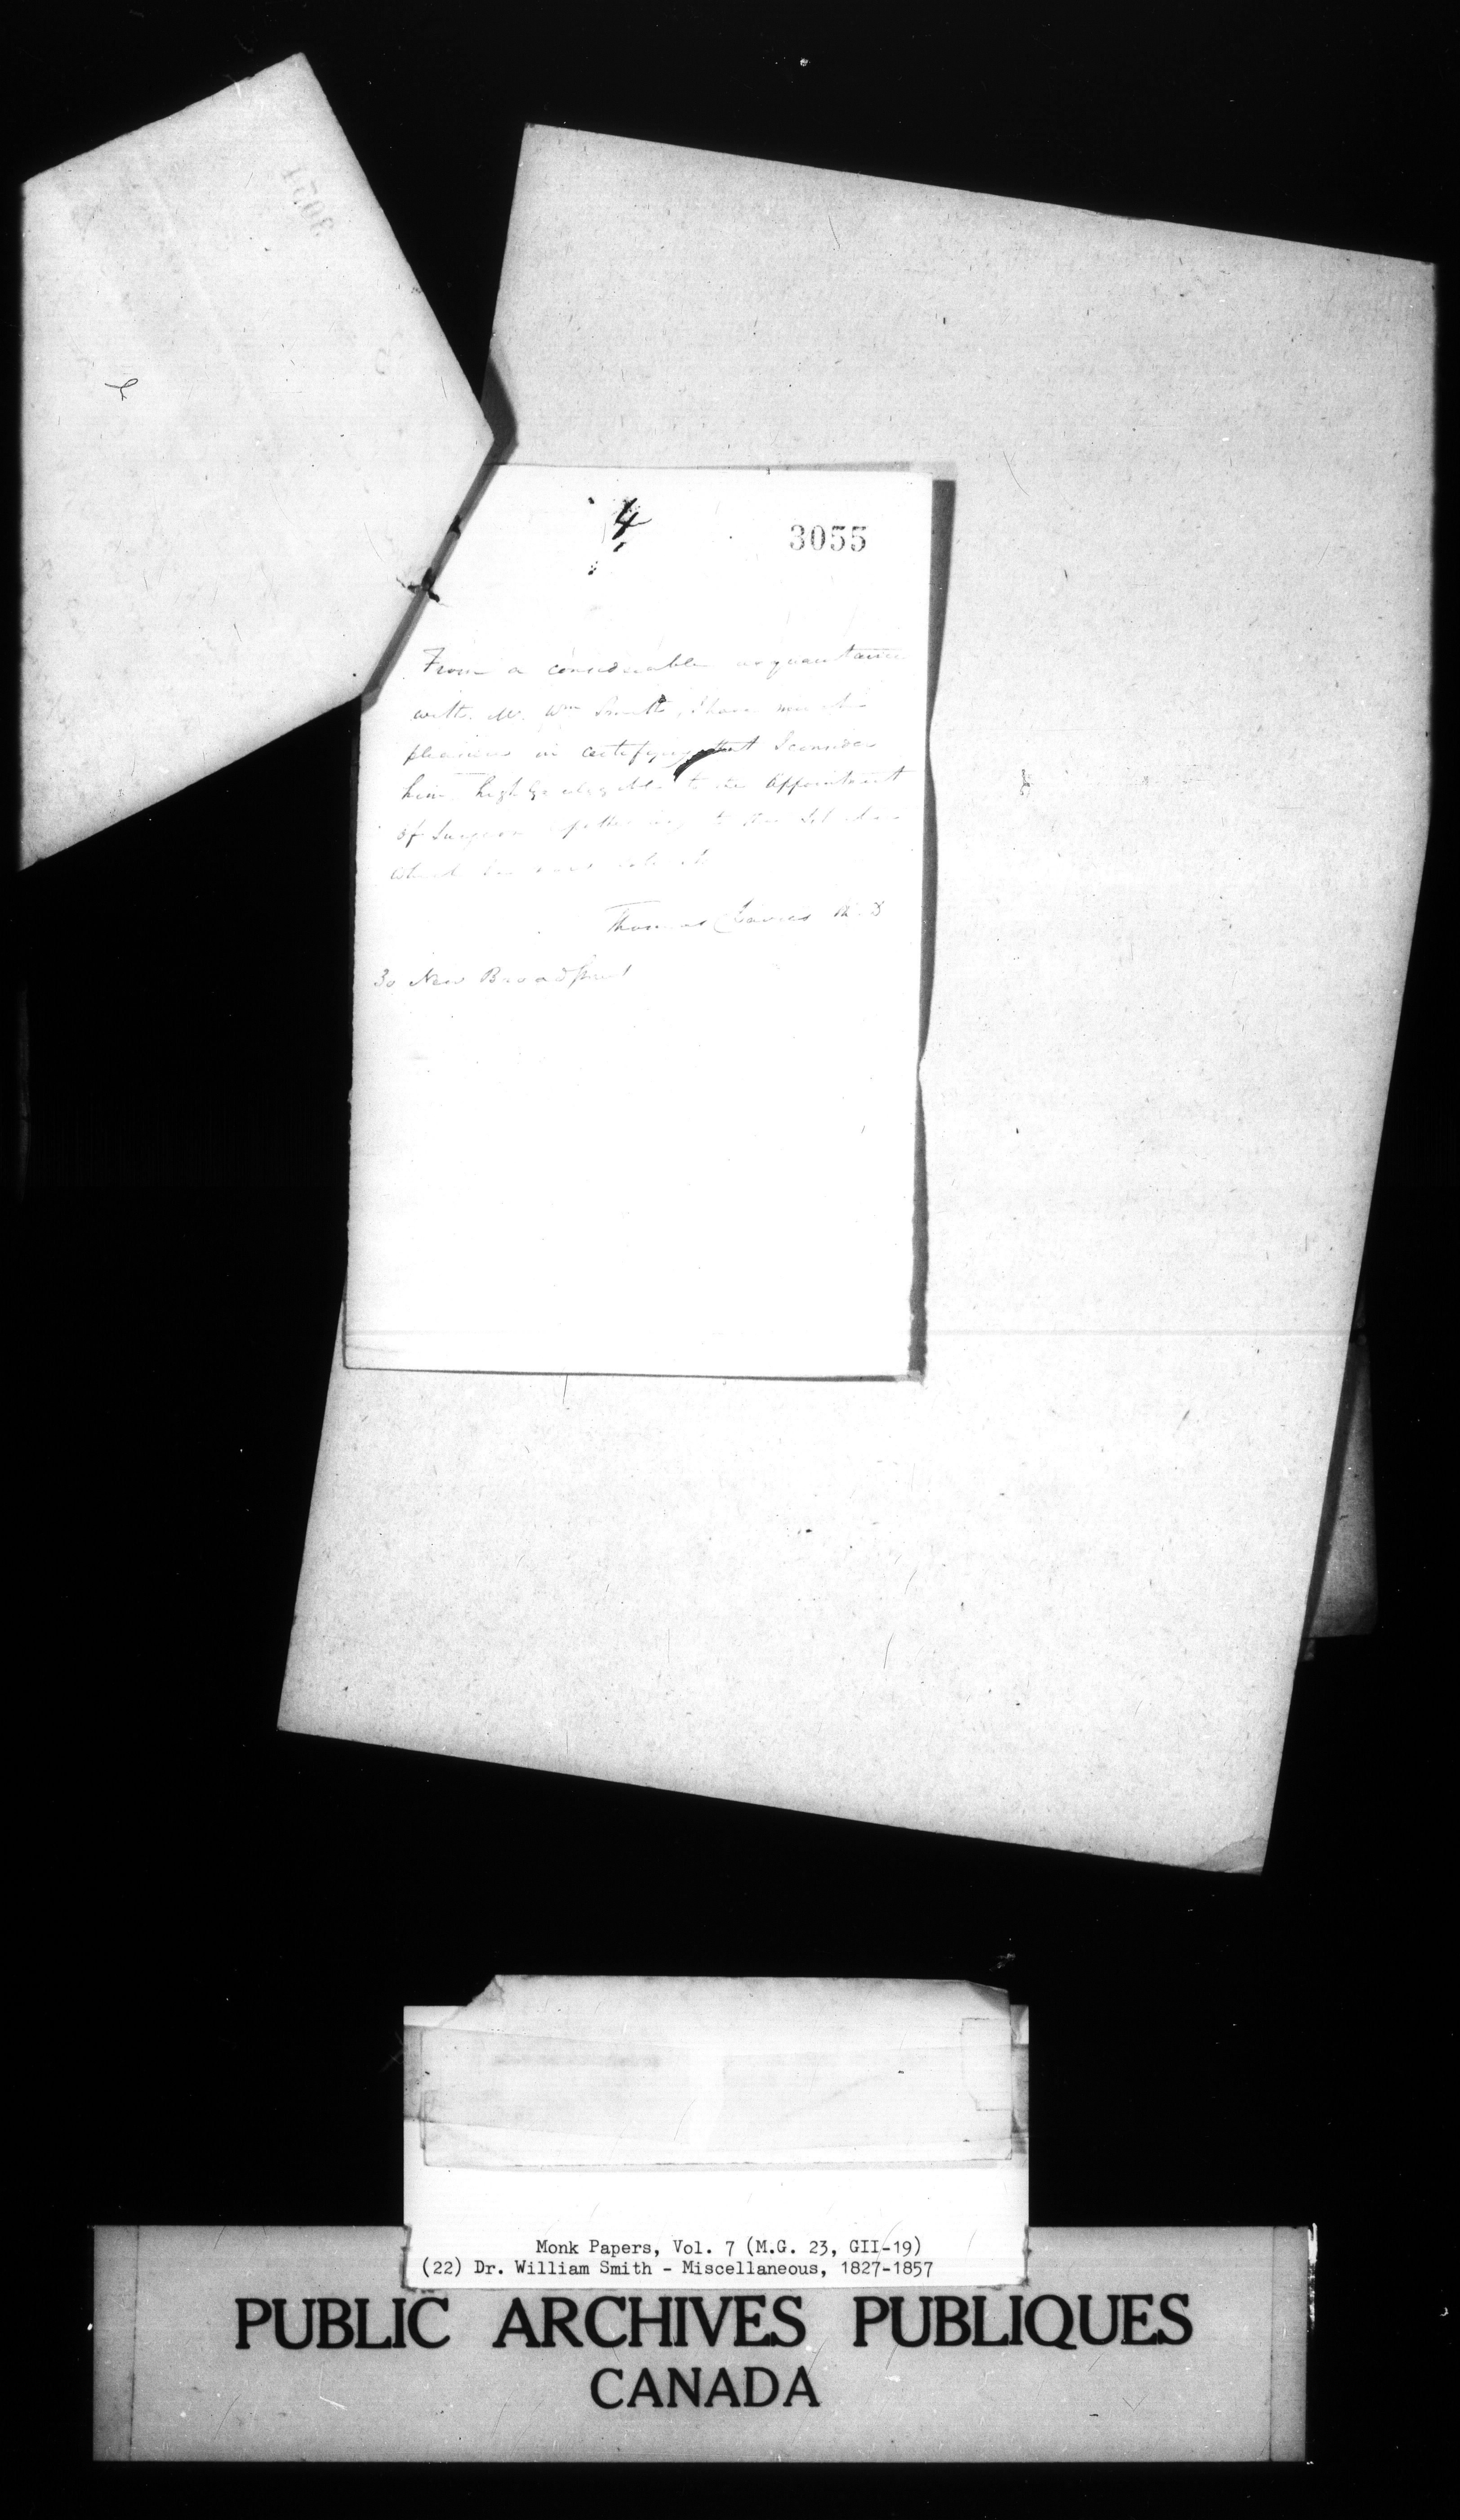 3054
4
3055
From a considerable acquaintance
with Mr. Wm Smith, I have much
pleasure in certifying that I consider
him highly eligible to the appointment
of Surgeon to the
which he
Thomas Davies M.D
30 New Broad Street
Monk Papers, Vol. 7 (M.G. 23, GII-19)
(22) Dr. William Smith - Miscellaneous, 1827-1857
PUBLIC ARCHIVES PUBLIQUES
CANADA